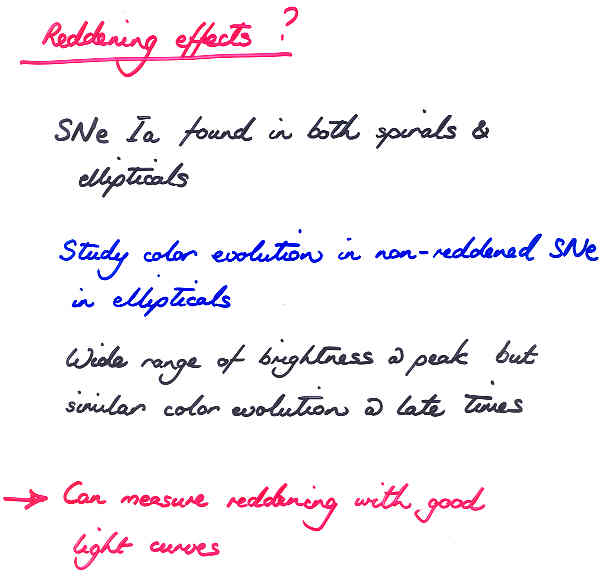 Reddening effects?
SNe Ia found in both spirals &
ellipticals
Study color evolution in non-reddened SNe
in ellipticals
Wide range of brightness @ peak but
similar color evolution @ late times
→ Can measure reddening with good
light curves